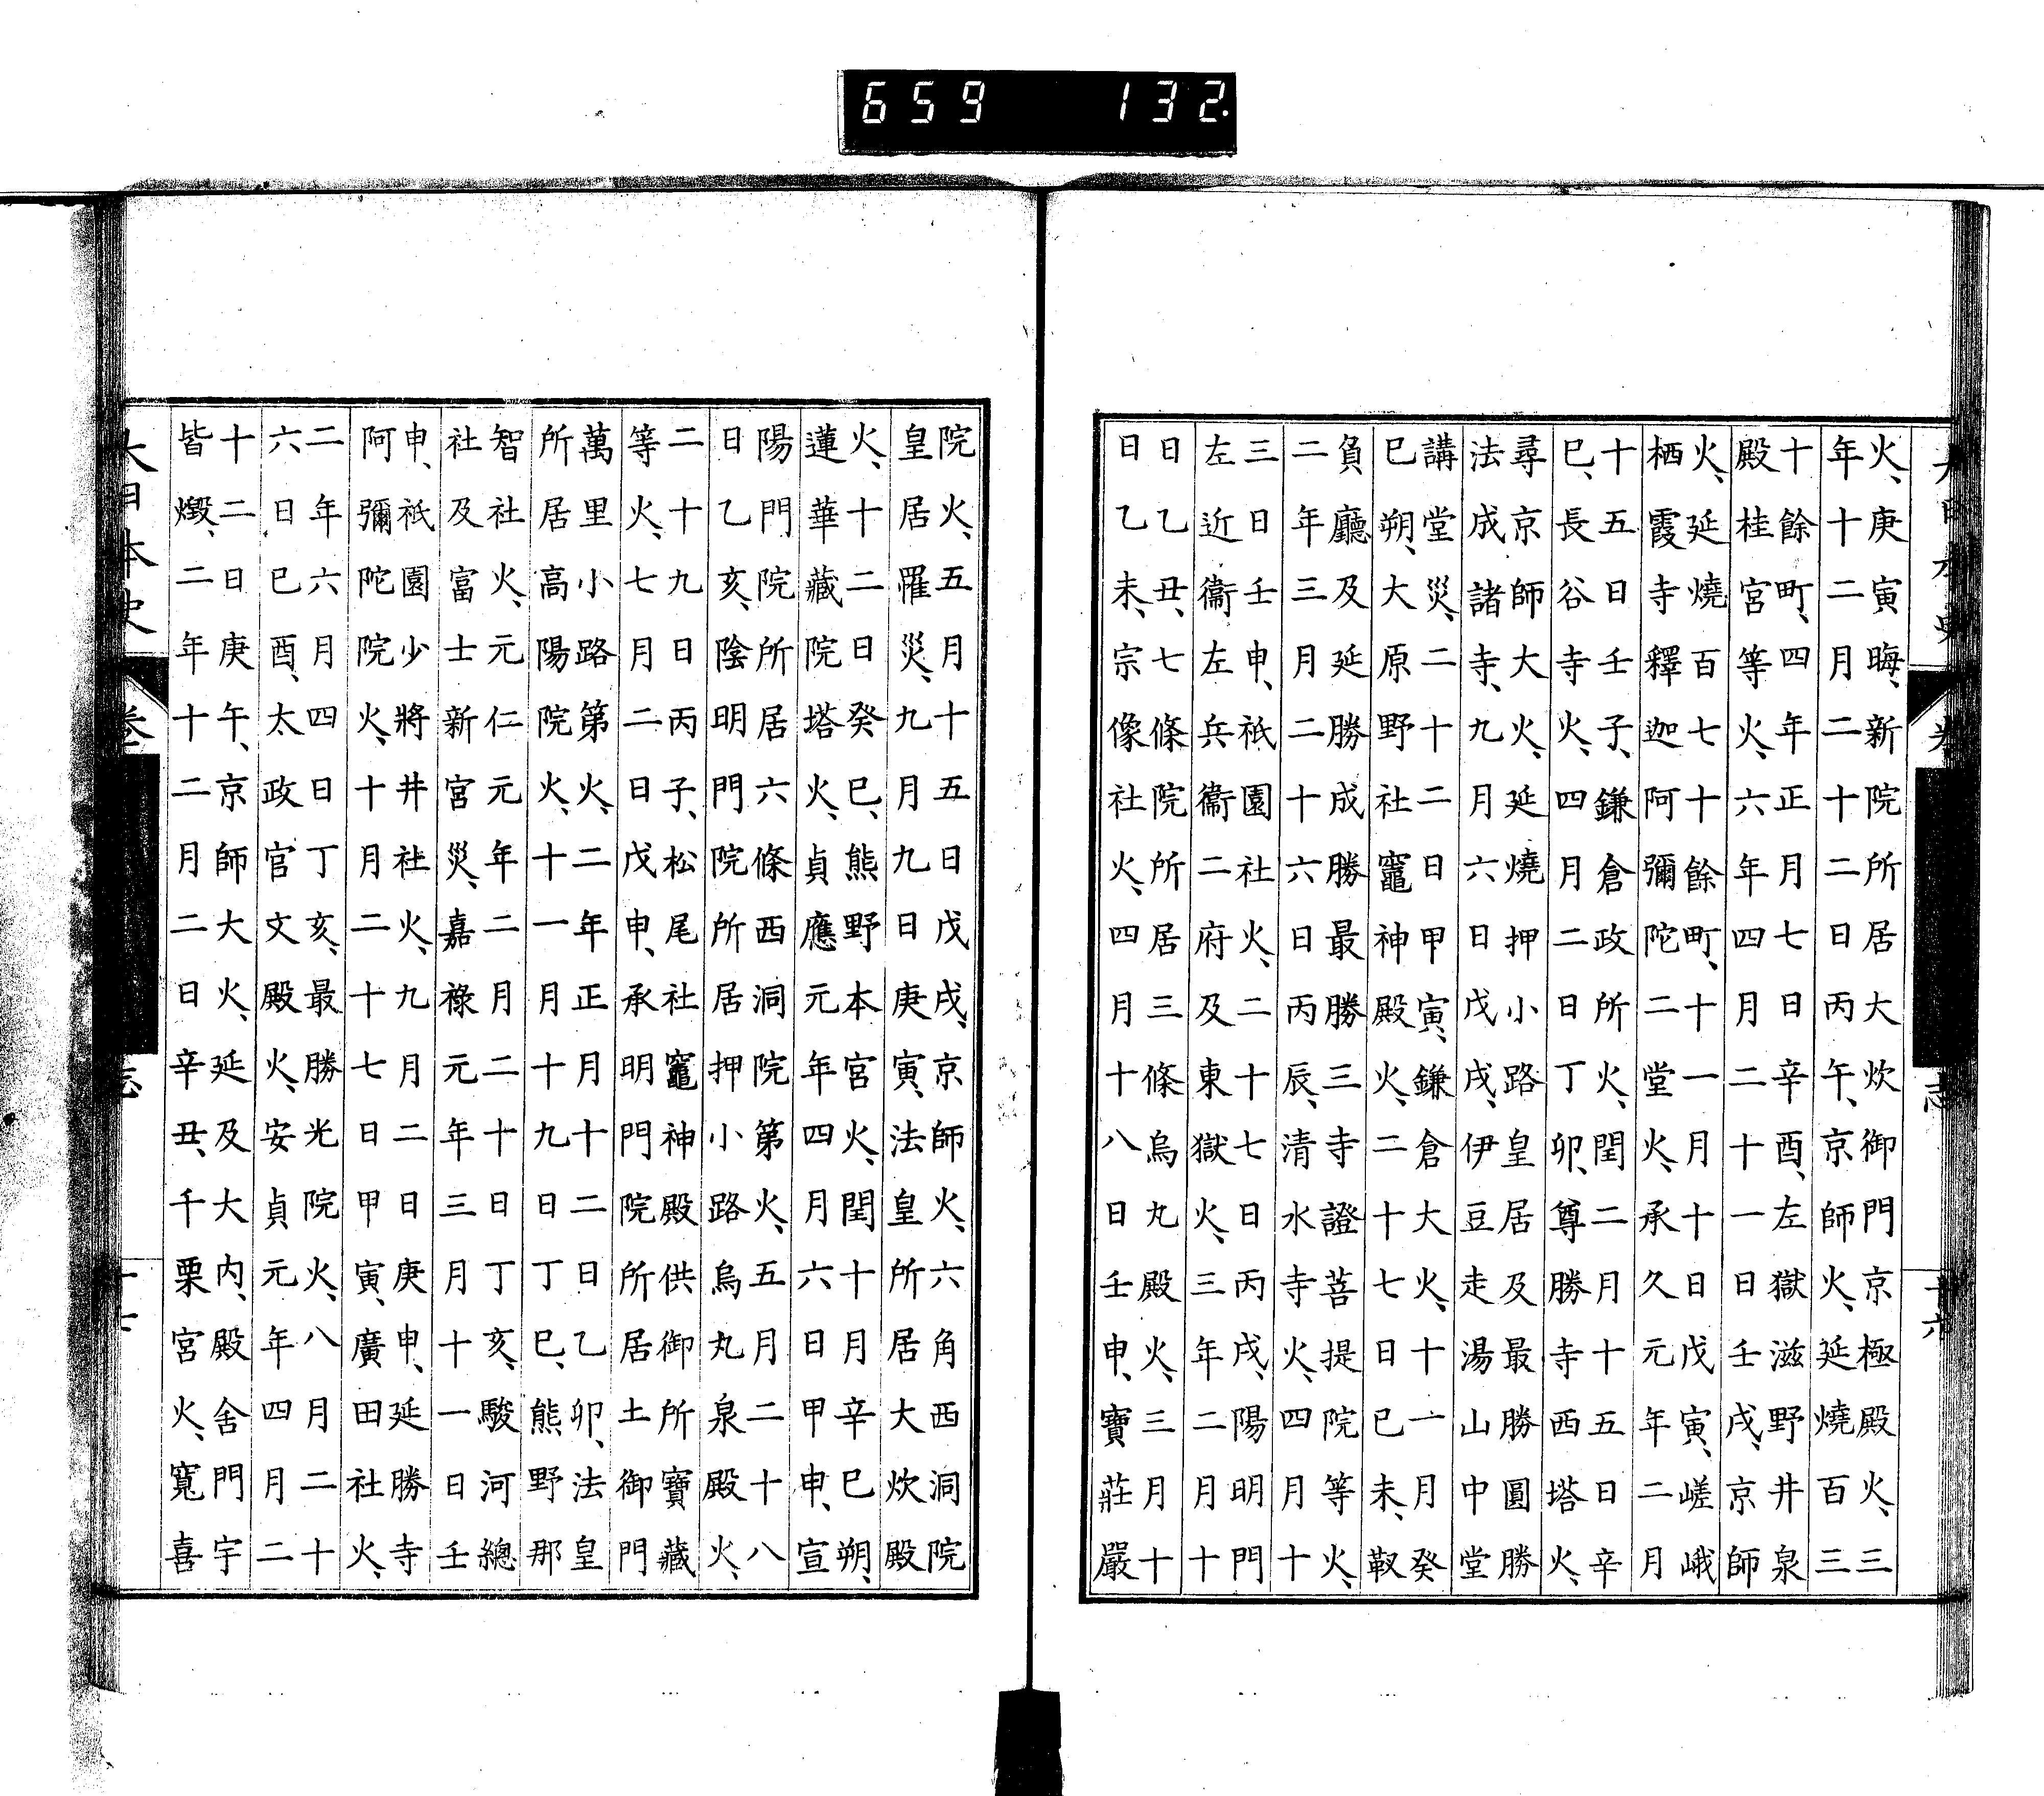 659 132
火、庚寅晦、新院所居大炊御門京極殿火、三
年十二月二十二日丙午、京師火、延燒百三
十餘町、四年正月七日辛酉、左獄滋野井泉
殿桂宮等火、六年四月二十一日壬戌、京師
火、延燒百七十餘町、十一月十日戊寅、嵯峨
栖霞寺釋迦阿彌陀二堂火、承久元年二月
十五日壬子、鎌倉政所火、閏二月十五日辛
巳、長谷寺火、四月二日丁卯、尊勝寺西塔火、
尋京師大火、延燒押小路皇居及最勝圓勝
法成諸寺、九月六日戊戌、伊豆走湯山中堂
講堂災、二十二日甲寅、鎌倉大火、十一月癸
巳朔、大原野社竈神殿火、二十七日已未、靫
負廳及延勝成勝最勝三寺證菩提院等火、
二年三月二十六日丙辰、清水寺火、四月十
三日壬申、祇園社火、二十七日丙戌、陽明門
左近衞左兵衞二府及東獄火、三年二月十
日乙丑、七條院所居三條烏丸殿火、三月十
日乙未、宗像社火、四月十八日壬申、寶莊嚴
院火、五月十五日戊戌、京師火、六角西洞院
皇居罹災、九月九日庚寅、法皇所居大炊殿
火、十二日癸巳、熊野本宮火、閏十月辛巳朔、
蓮華藏院塔火、貞應元年四月六日甲申、宣
陽門院所居六條西洞院第火、五月二十八
日乙亥、陰明門院所居押小路烏丸泉殿火、
二十九日丙子、松尾社竈神殿供御所寶藏
等火、七月二日戊申、承明門院所居土御門
萬里小路第火、二年正月十二日乙卯、法皇
所居高陽院火、十一月十九日丁巳、熊野那
智社火、元仁元年二月二十日丁亥、駿河總
社及富士新宮災、嘉祿元年三月十一日壬
申、祇園少將井社火、九月二日庚申、延勝寺
阿彌陀院火、十月二十七日甲寅、廣田社火、
二年六月四日丁亥、最勝光院火、八月二十
六日已酉、太政官文殿火、安貞元年四月二
十二日庚午、京師大火、延及大內、殿舍門宇
皆燬、二年十二月二日辛丑、千栗宮火、寬喜
大日本史 卷 志